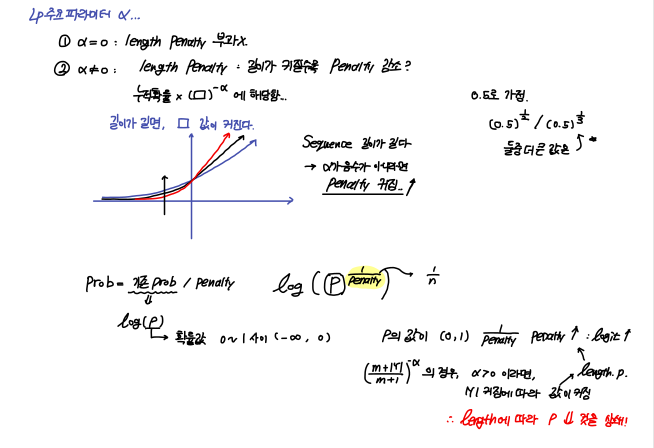 Lp 주요 파라미터 α...
① α=0 : length Penalty 부과X.
② α≠0 : length Penalty : 길이가 커질수록 Penalty 감소?
누적확률 × (□)^-α 에 해당함...
길이가 길면, □ 값이 커진다.
0.5로 가정.
(0.5)^1/2 / (0.5)^1/3
둘중 더 큰 값은
Sequence 길이가 길다
→ α가 음수가 아니라면
Penalty 커짐.. ↑
Prob = 기존 prob / penalty
log(P)
→ 확률값 0~1 사이 (-∞, 0)
log ( (P)^1/Penalty ) → 1/n
P의 값이 (0,1) 1/Penalty Penalty ↑ : logit ↑
length. p.
(m+|Y| / m+1)^-α 의 경우, α>0 이라면,
|Y| 커짐에 따라 값이 커짐
∴ length에 따라 P ⇓ 것을 상쇄!